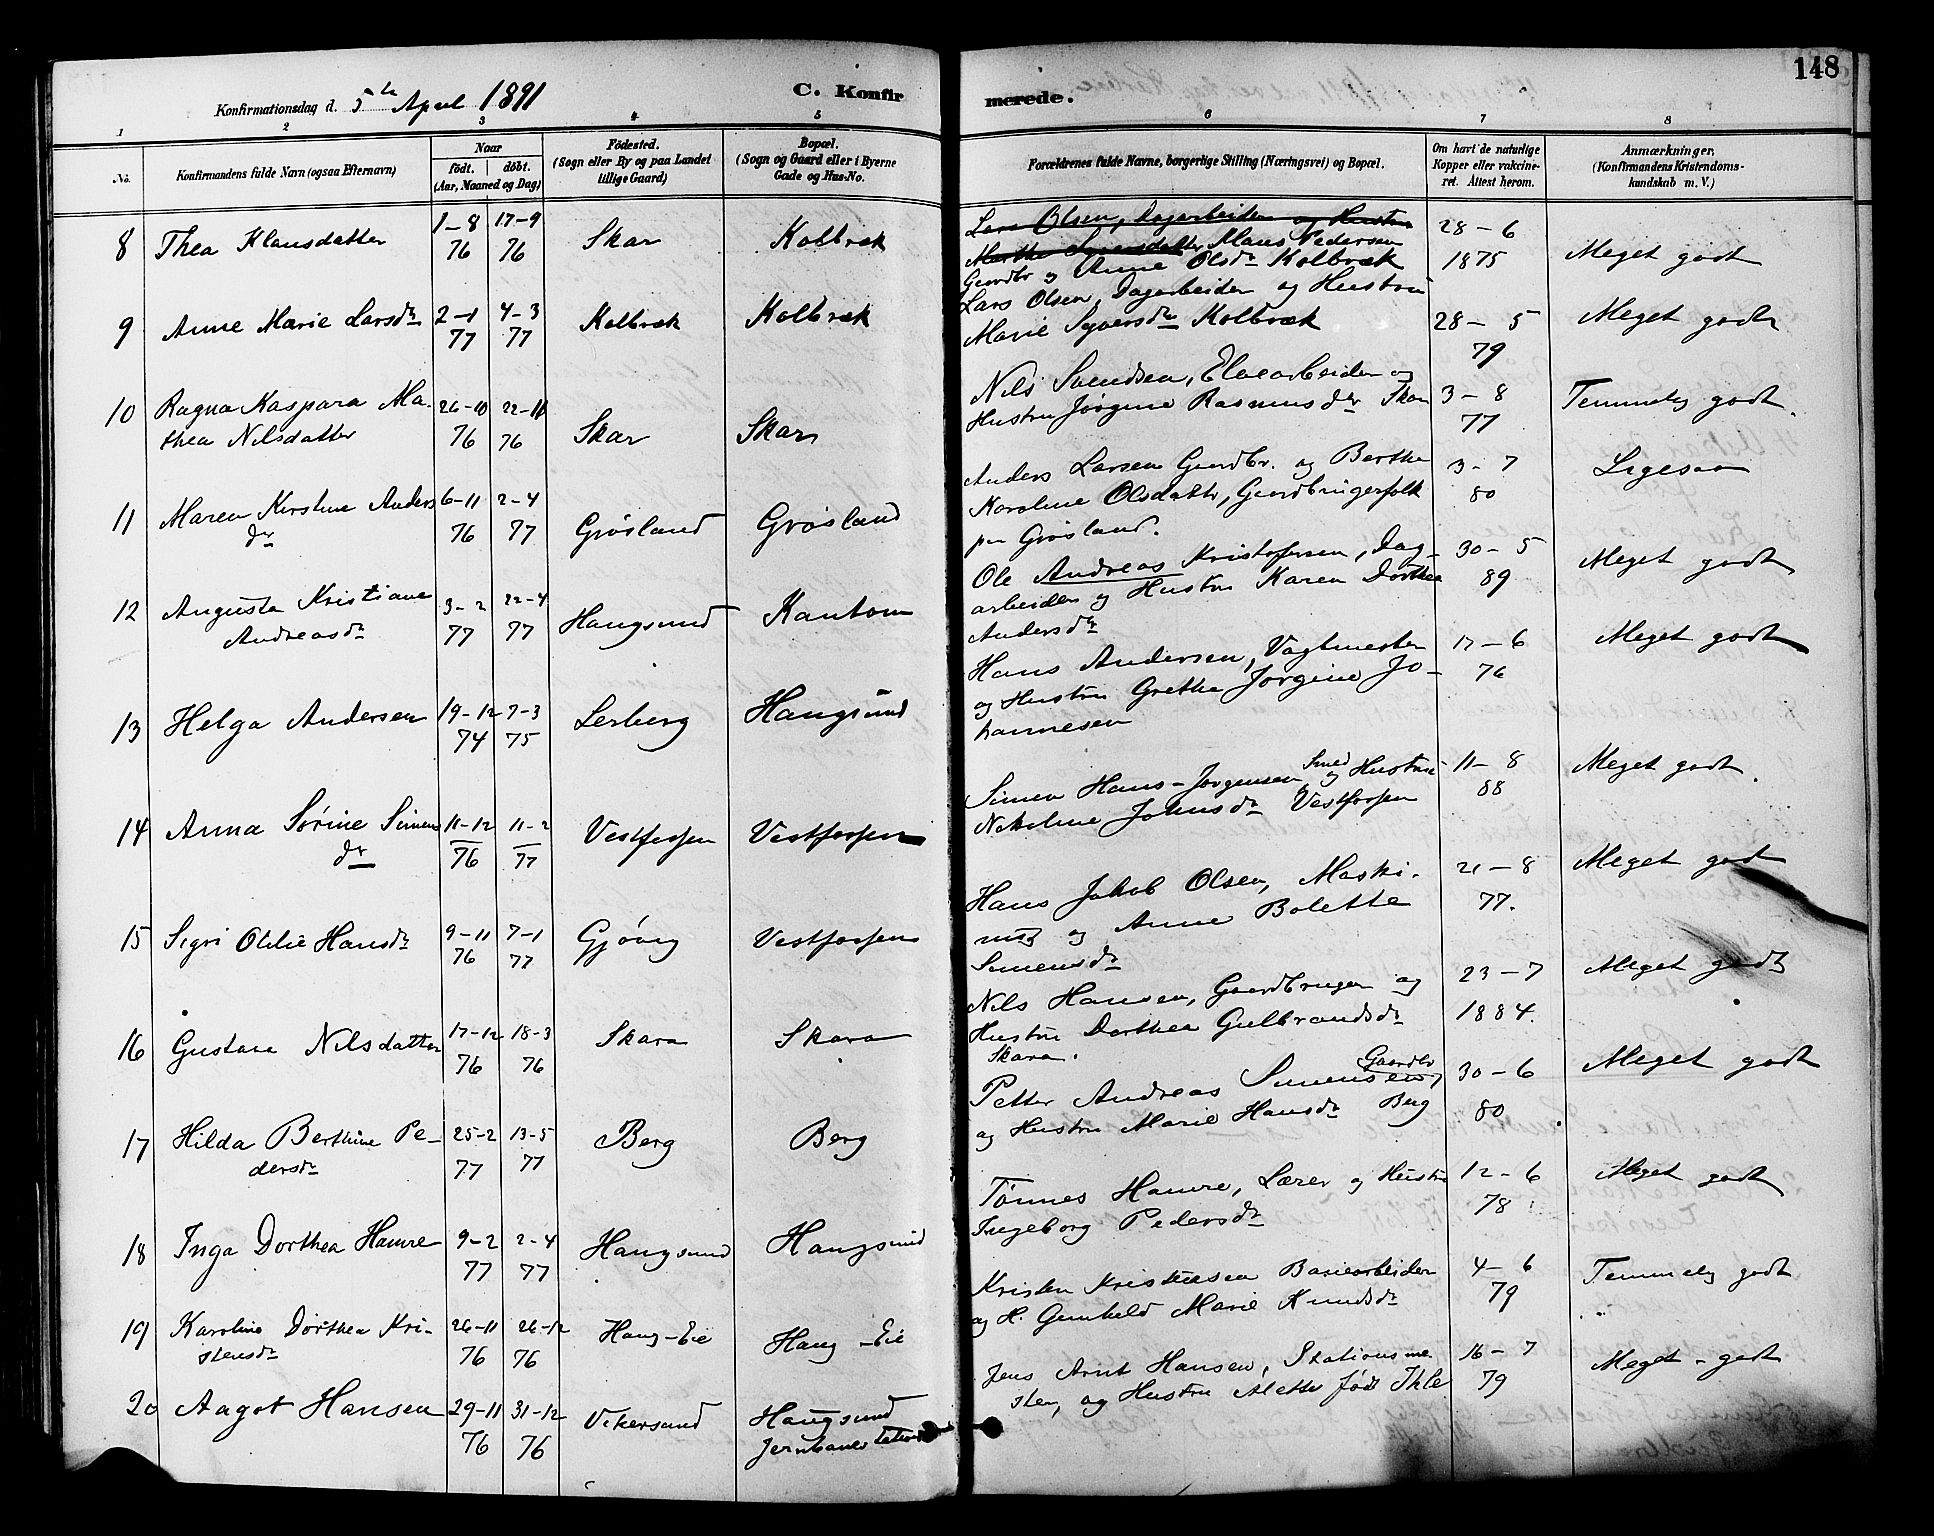 148
Konfirmationsdag d. 5te April 1891
C. Konfirmerede.
1 2 3 4 5 6 7 8
No.
Konfirmandens fulde Navn (ogsaa Efternavn)
Naar
født. døbt.
(Aar, Maaned og Dag)
Fødested.
(Sogn eller By og paa Landet
tillige Gaard)
Bopæl.
(Sogn og Gaard eller i Byerne
Gade og Hus-No.
Forældrenes fulde Navne, borgerlige Stilling (Næringsvei) og Bopæl.
Om havt de naturlige
Kopper eller vakcine-
ret. Attest herom.
Anmærkninger,
(Konfirmandens Kristendoms-
kundskab m. V.)
8 Thea Klausdatter 1-8 76 17-9 76 Skar Kolbræk
Lars Olsen, Dagarbeider og Hustru
Marthe Syversdatter Klaus Pedersen
Gordbr og Anne Olsdr Kolbræk
28-6 1875 Meget godt
9 Anne Marie Larsdr 2-1 77 4-3 77 Kolbræk Kolbræk
Lars Olsen, Dagarbeider og Hustru
Marie Syversdr Kolbræk
28-5 79 Meget godt
10 Ragna Kaspara Ma-
thea Nilsdatter 26-10 76 22-11 76 Skar Skar
Nils Svendsen, Elvearbeider og
Hustru Jørgine Rasmusdtr Skar
3-8 77 Temmelig godt.
11 Maren Kirstine Anders
dr 6-11 76 2-4 77 Grøsland Grøsland
Anders Larsen Gordbr. og Berthe
Karoline Olsdattr, Gordbrugerfolk
paa Grøsland.
3-7 80 Ligesaa
12 Augusta Kristiane
Andreasdr 3-2 77 22-4 77 Haugsund
Ole Andreas Kristofersen, Dag-
arbeider og Hustru Karen Dorthea
Andersdtr
30-5 89 Meget godt
13 Helga Andersen 19-12 74 7-3 75 Lerberg Haugsund
Hans Andersen, Vagtmester
og Hustru Grethe Jørgine Jo-
hannesen
17-6 76 Meget godt
14 Anna Sørine Simens
dr 11-12 76 11-2 77 Vestfossen Vestfossen
Simen Hans-Jørgensen Smed og Hustru
Nikoline Johnsdr Vestfossen
11-8 88 Meget godt.
15 Sigri Otilie Hansdr 9-11 76 7-1 77 Gjøvig Vestfossen
Hans Jakob Olsen, Maski-
nist og Anne Bolette
Simensdr
21-8 77. Meget godt
16 Gustava Nilsdatter 17-12 76 18-3 76 Skara Skara
Nils Hansen, Gaardbruger og
Hustru Dorthea Gulbrandsdr
Skara.
23-7 1884. Meget godt
17 Hilda Berthine Pe-
dersdr 25-2 77 13-5 77 Berg Berg
Petter Andreas Simensen, Gaardbr
og Hustru Marie Hansdr Berg
30-6 80. Meget godt
18 Inga Dorthea Hamre 9-2 77 2-4 77 Haugsund Haugsund
Tønnes Hamre, Lærer og Hustru
Ingeborg Pedersdr
12-6 78 Meget godt
19 Karoline Dorthea Kri-
stensdr 26-11 76 26-12 76 Haug-Eie Haug-Eie
Kristen Kristensen
og H. Gunhild Marie Knudsdr
4-6 79 Temmelig godt
20 Aagot Hansen 29-11 76 31-12 76 Vikersund Haugsund
Jernbanestation
Jens Arnt Hansen, Stationsme-
ster, og Hustru Alette født Ihle
16-7 79 Meget-godt